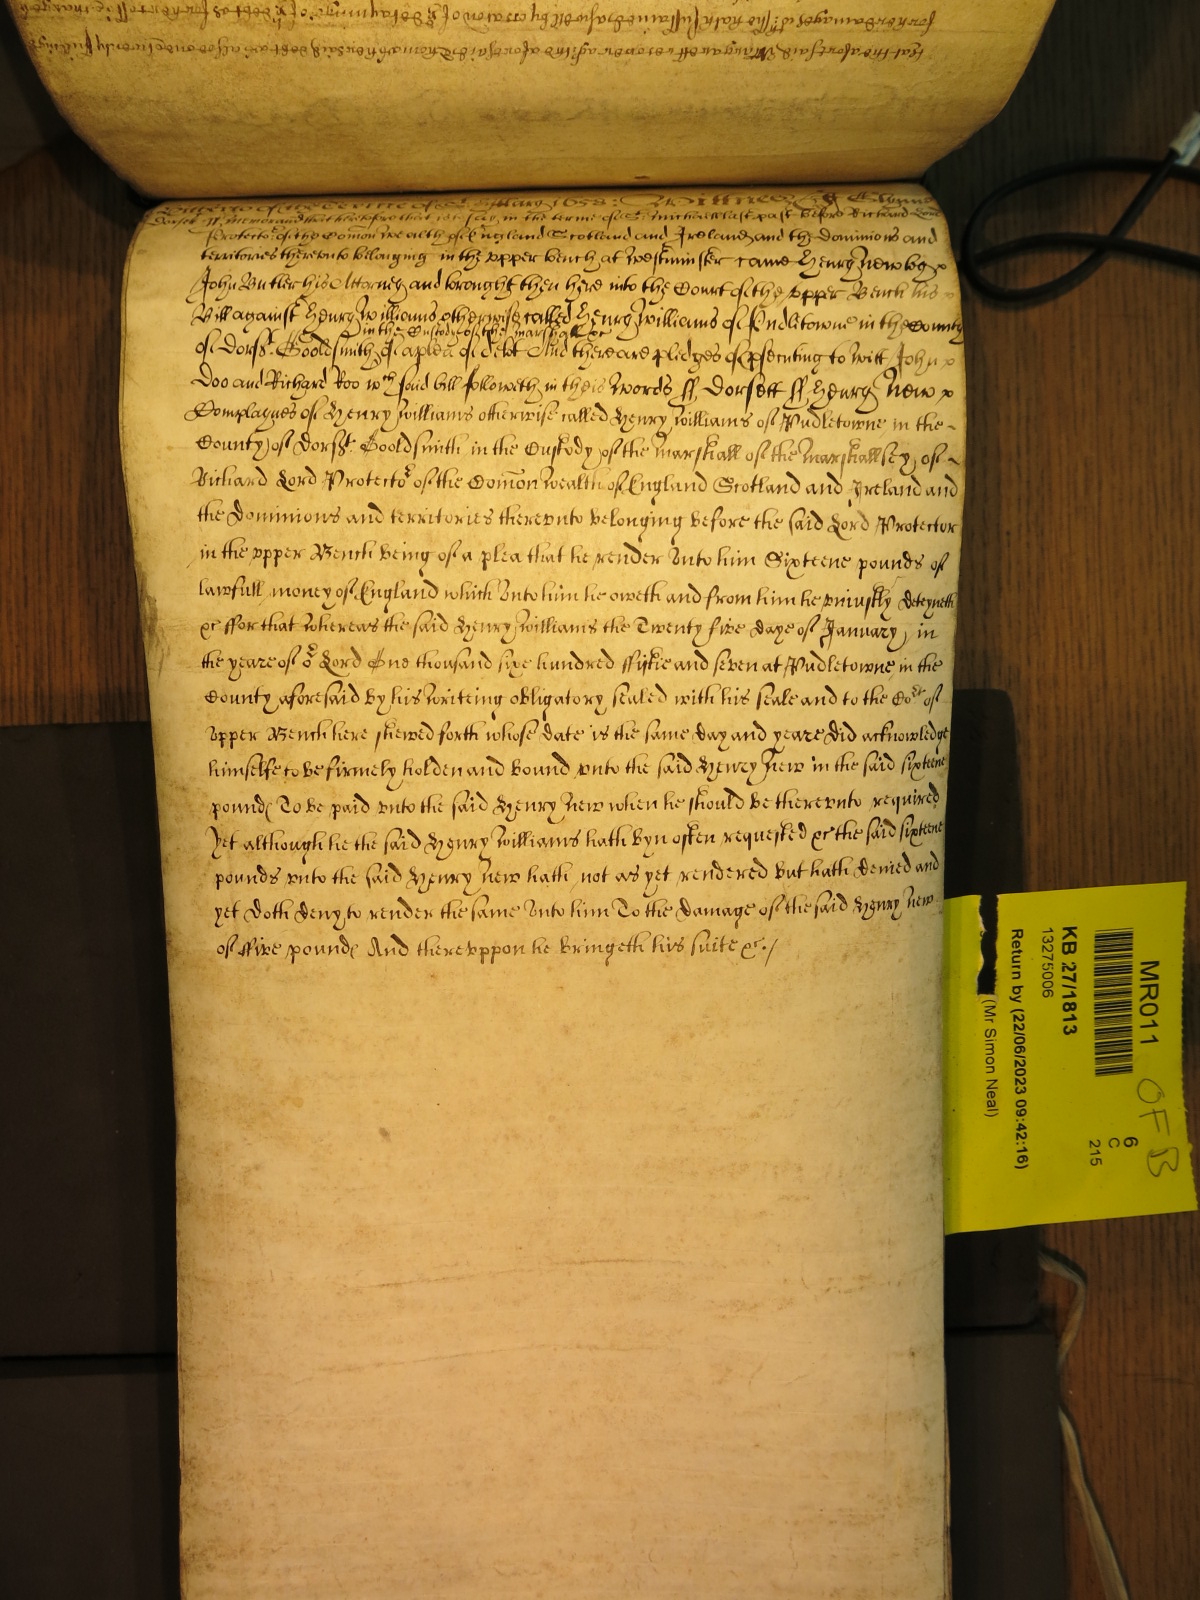 that the aforesaid
1658: Wittnes
Dorset ss Memorand that heretofore that is to say in the terme of St Michaell last past before Richard Lord
Protector of the Comon wealth of England Scotland and Ireland and the dominions and
territories therevnto belonging in the vpper bench at westminster came Henry New by
John Butler his Attorney and brought then here into the Court of the vpper Bench his
Bill against Henry Williams otherwise called Henry Williams of Pudletowne in the County
in the Custody of the marshall &c
of Dorst. Gooldsmith of a plea of debt And there are pledges of psecuting to witt John
Doo and Richard Roo wch said bill followeth in theis words ss Dorsett ss Henry New
Complaynes of Henry Williams otherwise called Henry Williams of Pudletowne in the
County of Dorst. Gooldsmith in the Custody of the marshall of the marshallsey of
Richard Lord Protector of the Comon Wealth of England Scotland and Ireland and
the Dominions and territories therevnto belonging before the said Lord Protector
in the vpper Bench being of a plea that he render vnto him Sixteene pounds of
lawfull money of England which vnto him he oweth and from him he vniustly deteyneth
&c ffor that whereas the said Henry Williams the Twenty five daye of January in
the yeare of or Lord One thousand sixe hundred ffiftie and seven at Pudletowne in the
County aforesaid by his writeing obligatory sealed with his seale and to the Cort of
vpper Bench here shewed forth whose date is the same day and yeare did acknowledge
himselfe to be firmely holden and bound vnto the said Henry New in the said sixteene
pounds To be paid vnto the said Henry New when he should be therevnto required
Yet although he the said Henry Williams hath byn often requested &c the said sixteene
pounds vnto the said Henry New hath not as yet rendered but hath denied and
yet doth deny to render the same vnto him To the damage of the said Henry New
of ffive pounds And therevppon he bringeth his suite &c./
MR011
6
C
215
KB 27/1813
13275006
Return by (22/06/2023 09:42:16)
(Mr Simon Neal)
OFB